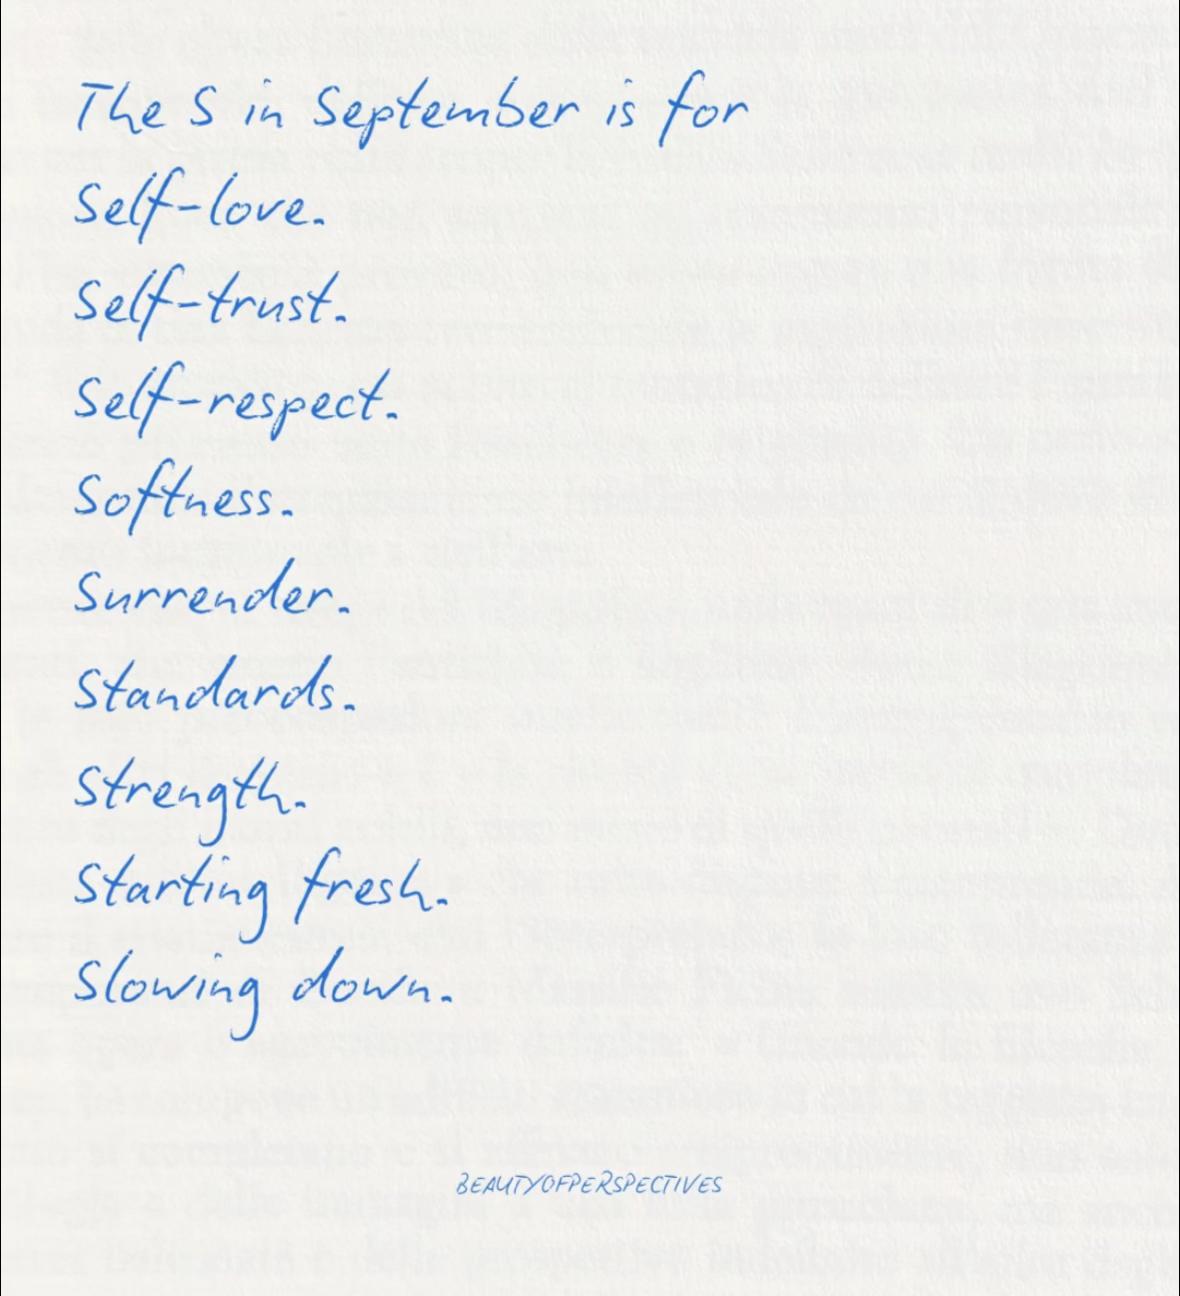 The S in September is for
Self-love.
Self-trust.
Self-respect.
Softness.
Surrender.
Standards.
Strength.
Starting fresh.
Slowing down.
BEAUTYOFPERSPECTIVES